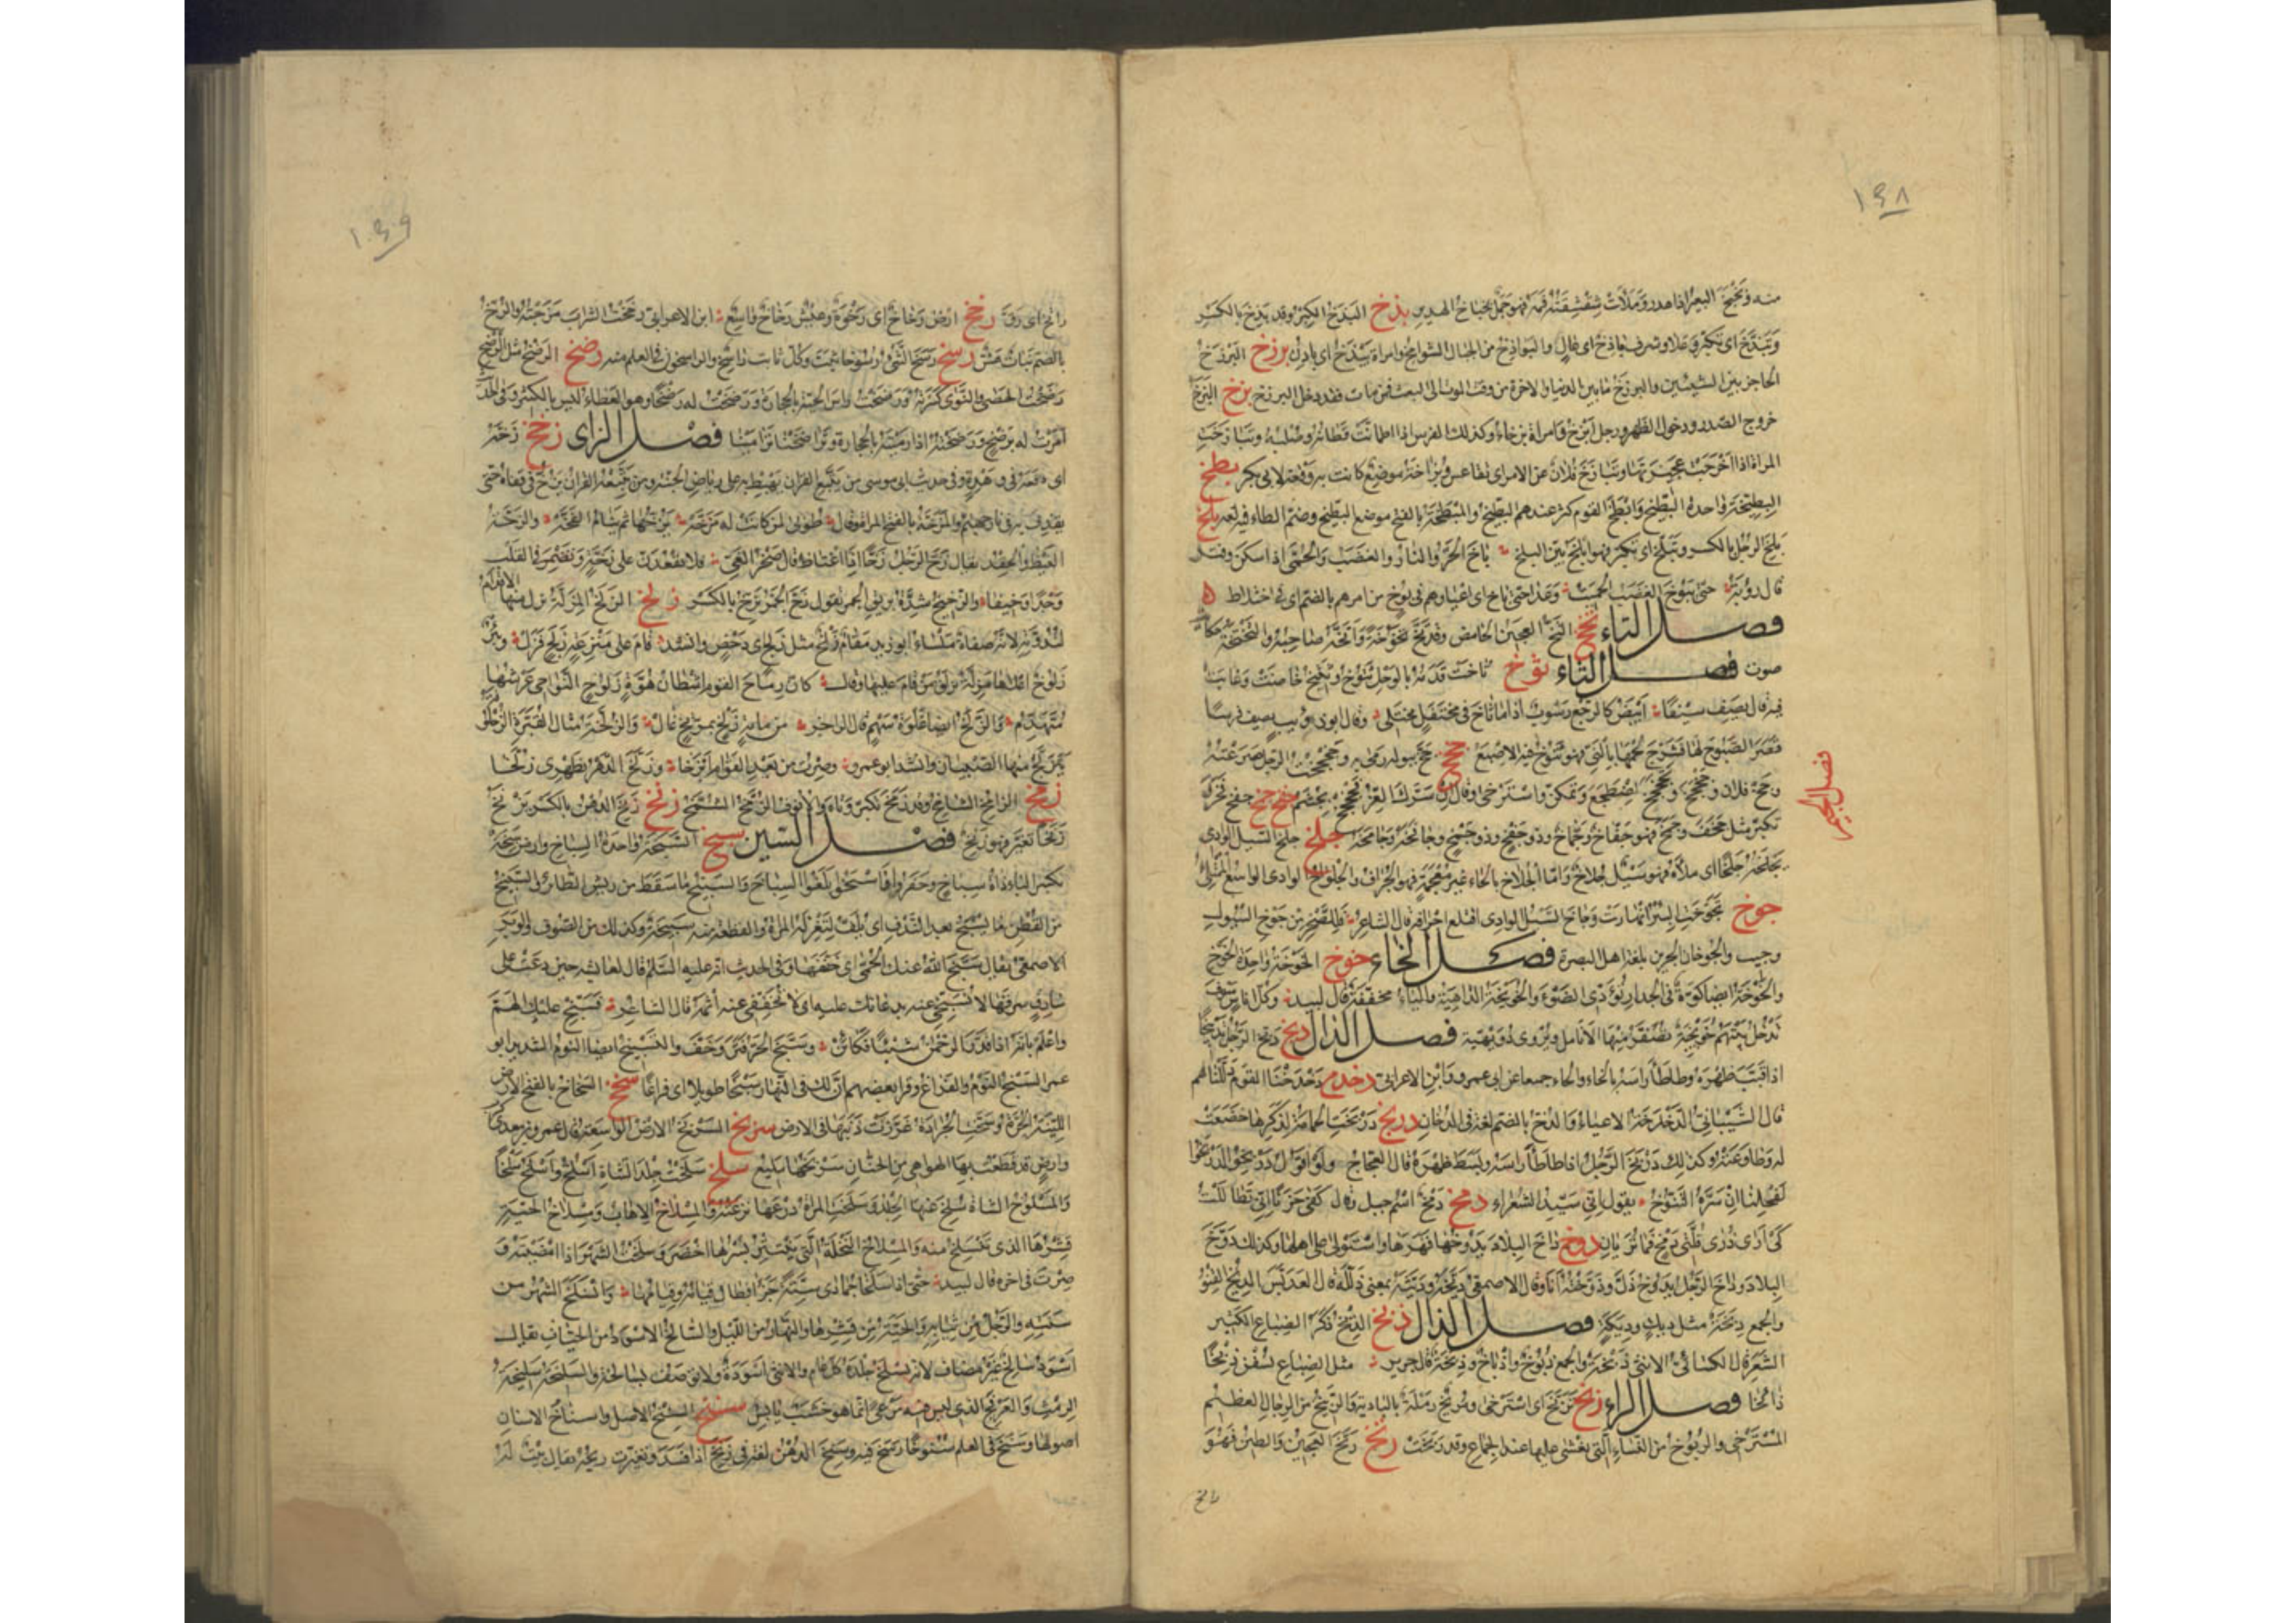 ١٤٨
منه وبخبخ البعير اذا هدر وملأت شقشقته فمه فهو جمل بخباخ الهدير بذخ البذخ الكبر وقد بذخ بالكسر
وتبذخ اى تكبر وعلا وشرف باذخ اى عال والبواذخ من الجبال الشوامخ وامراة بيذخ اى بادن برزخ البرزخ
الحاجز بين الشيئين والبرزخ ما بين الدنيا والاخرة من وقت الموت الى البعث فمن مات فقد دخل البرزخ بزخ البزخ
خروج الصدر ودخول الظهر ورجل ابزخ وامراة بزخاء وكذلك الفرس اذا اطمانت قطاته وصلبه وتبازخت
المراة اذا اخرجت عجيزتها وتبازخ فلان عن الامر اى تقاعس وبزاخة موضع كانت به وقعة لابى بكر بطخ
البطيخة واحدة البطيخ وابطخ القوم كثر عندهم البطيخ والمبطخة بالفتح موضع البطيخ وضم الطاء فيه لغة بلخ
بلخ الرجل بالكسر وتبلخ اى تكبر فهو ابلخ بين البلخ باخ الحر والنار والغضب والحمى اذا سكن وفتر
قال رؤبة حتى يبوخ الغضب الحميت وعدا حتى باخ اى اعيا وهم فى بوخ من امرهم بالضم اى فى اختلاط
فصل التاء تخخ التخ العجين الحامض وقد تخ تخوخة واتخه صاحبه والتختخة حكاية
صوت فصل الثاء ثوخ ثاخت قدمه بالوحل تثوخ وتثيخ خاضت وغابت
فيه قال يصف سيفا ابيض كالرجع رسوب اذا ما ثاخ فى محتفل يختلى وقال ابو ذؤيب يصف فرسا
قصر الصبوح لها فشرج لحمها بالنى فهو تثوخ فيه الاصبع جخخ جخ ببوله رمى به وجخجخت الرجل صرعته
وجخ فلان وجخجخ وتجخجخ اضطجع وتمكن واسترخى وقال ان سرك العز فجخجخ بجشم جفخ جفخ فخر
تكبر مثل جخف وجمخ فهو جفاخ وجماخ وذو جفخ وذو جمخ وجافخه وجامخه جلخ جلخ السيل الوادى
يجلخه جلخا اى ملأه فهو سيل جلاخ واما الجلاح بالحاء غير معجمة فهو الجراف والجلواخ الوادى الواسع الممتلئ
فصل الجيم
جوخ تجوخت البئر انهارت وجاخ السيل الوادى اقتلع اجرافه قال الشاعر فللصخر من جوخ السيول
وجيب والجوخان الجرين بلغة اهل البصرة فصل الخاء خوخ الخوخة واحدة الخوخ
والخوخة ايضا كوة فى الجدار تؤدى الضوء والخويخية الداهية والياء مخففة قال لبيد وكل اناس سوف
تدخل بينهم خويخية تصفر منها الانامل ويروى دويهية فصل الدال دبخ دبخ الرجل تدبيخا
اذا قبب ظهره وطاطأ راسه بالخاء والحاء جميعا عن ابى عمرو وابن الاعرابى دخدخ دخدخنا القوم ذللناهم
قال الشيبانى الدخدخة الاعياء والدخ بالضم لغة فى الدخان دربخ دربخت الحمامة لذكرها خضعت
له وطاوعته وكذلك دربخ الرجل اذا طاطأ راسه وبسط ظهره قال العجاج ولو اقول دربخوا لدربخوا
لفحلنا ان سره التنوخ يقول انى سيد الشعراء دمخ دمخ اسم جبل وقال كفى حزنا انى تطاللت
كى ارى ذرى قلتى دمخ فما تريان دوخ داخ البلاد يدوخها قهرها واستولى على اهلها وكذلك دوخ
البلاد وداخ الرجل يدوخ ذل ودوخته انا وقال الاصمعى ديخته وديثته بمعنى ذللته قال العدبس الديخ القنو
والجمع ديخة مثل ديك وديكة فصل الذال ذيخ الذيخ ذكر الضباع الكثير
الشعر قال الكسائى الانثى ذيخة والجمع ذيوخ واذياخ وذيخة قال جرير مثل الضباع يسفن ذيخا
ذائخا فصل الراء ربخ تربخ اى استرخى ومربخ رملة بالبادية والربيخ من الرجال العظيم
المسترخى والربوخ من النساء التى يغشى عليها عند الجماع وقد ربخت رتخ رتخ العجين والطين فهو
راتخ
١٤٩
راتخ اى رق رخخ ارض رخاخ اى رخوة وعيش رخاخ واسع ابن الاعرابى رخخت الشراب مزجته والرخ
بالضم نبات هش رسخ رسخ الشئ رسوخا ثبت وكل ثابت راسخ والراسخون فى العلم منه رضخ الرضخ مثل الرضح
رضخت الحصى والنوى كسرته ورضخت راس الحية بالحجارة ورضخت له رضخا وهو العطاء ليس بالكثير وفى الحديث
امرت له برضخ وراضخته اذا رميته بالحجارة وتراضخنا ترامينا فصل الزاى زخخ زخه
اى دفعه فى وهدة وفى حديث ابى موسى من يتبع القران يهبط به على رياض الجنة ومن يتبعه القران يزخ فى قفاه حتى
يقذف به فى نار جهنم والمزخة بالفتح المراة قال طوبى لمن كانت له مزخة يزخها ثم ينام الفخه والزخة
الغيظ والحقد يقال زخ الرجل زخا اذا اغتاظ قال صخر الغى فلا تقعدن على زخة وتضمر فى القلب
وجدا وخيفا والزخيخ شدة بريق الجمر تقول زخ الجمر يزخ بالكسر زلخ الزلخ المزلة تزل منها الاقدام
لندوته لانه صفاة ملساء ابو زيد مقام زلخ مثل زلج اى دحض وانشد قام على منزعة زلخ فزل وبئر
زلوخ اعلاها مزلة يزلق من قام عليها وقال كان رماح القوم اشطان هوة زلوخ النواحى عرشها
متهدم والزلخ ايضا غلوة سهم قال الراجز من مائة زلخ بمريخ غال والزلخة مثال القبرة الزحلوقة
يتزلخ منها الصبيان وانشد ابو عمرو وصرت من بعد القوام ابزخا وزلخ الدهر بظهرى زلخا
زمخ الزامخ الشامخ وقد زمخ تكبر وتاه والانوف الزمخ الشمخ زنخ زنخ الدهن بالكسر يزنخ
زنخا تغير فهو زنخ فصل السين سبخ السبخة واحدة السباخ وارض سبخة
بكسر الباء ذات سباخ وحفروا فاسبخوا بلغوا السباخ والسبيخ ما سقط من ريش الطائر والسبيخ
من القطن ما يسبخ بعد الندف اى يلف لتغزله المراة والقطعة منه سبيخة وكذلك من الصوف والوبر
الاصمعى يقال سبخ الله عنك الحمى اى خففها وفى الحديث انه عليه السلم قال لعائشة حين دعت على
سارق سرقها لا تسبخى عنه بدعائك عليه اى لا تخففى عنه اثمه قال الشاعر فسبخ عليك الهم
واعلم بانه اذا قدر الرحمن شيئا فكائن وسبخ الحر فتر وخف والتسبيخ ايضا النوم الشديد ابو
عمرو السبخ النوم والفراغ وقرا بعضهم ان لك فى النهار سبخا طويلا اى فراغا سخخ السخاخ بالفتح الارض
اللينة الحرة وسخت الجرادة غرزت ذنبها فى الارض سربخ السربخ الارض الواسعة قال عمرو بن معدى كرب
وارض قد قطعت بها الهواهى من الجنان سربخها مليع سلخ سلخت جلد الشاة اسلخ واسلخ سلخا
والمسلوخ الشاة سلخ عنها الجلد وسلخت المراة درعها نزعته والمسلاخ الاهاب ومسلاخ الحية
قشرها الذى تنسلخ منه والمسلاخ النخلة التى ينتثر بسرها اخضر وسلخت الشهر اذا امضيته و
صرت فى اخره قال لبيد حتى اذا سلخا جمادى ستة جزءا فطال صيامه وصيامها وانسلخ الشهر من
سنته والرجل من ثيابه والحية من قشرها والنهار من الليل والسالخ الاسود من الحيات يقال
اسود سالخ غير مضاف لانه يسلخ جلده كل عام والانثى اسودة ولا توصف بسالخة والسليخة سليخة
الرمث والعرفج الذى ليس فيه مرعى انما هو خشب يابس سنخ السنخ الاصل واسناخ الاسنان
اصولها وسنخ فى العلم سنوخا رسخ فيه وسنخ الدهن لغة فى زنخ اذا فسد وتغيرت ريحه يقال بيت له